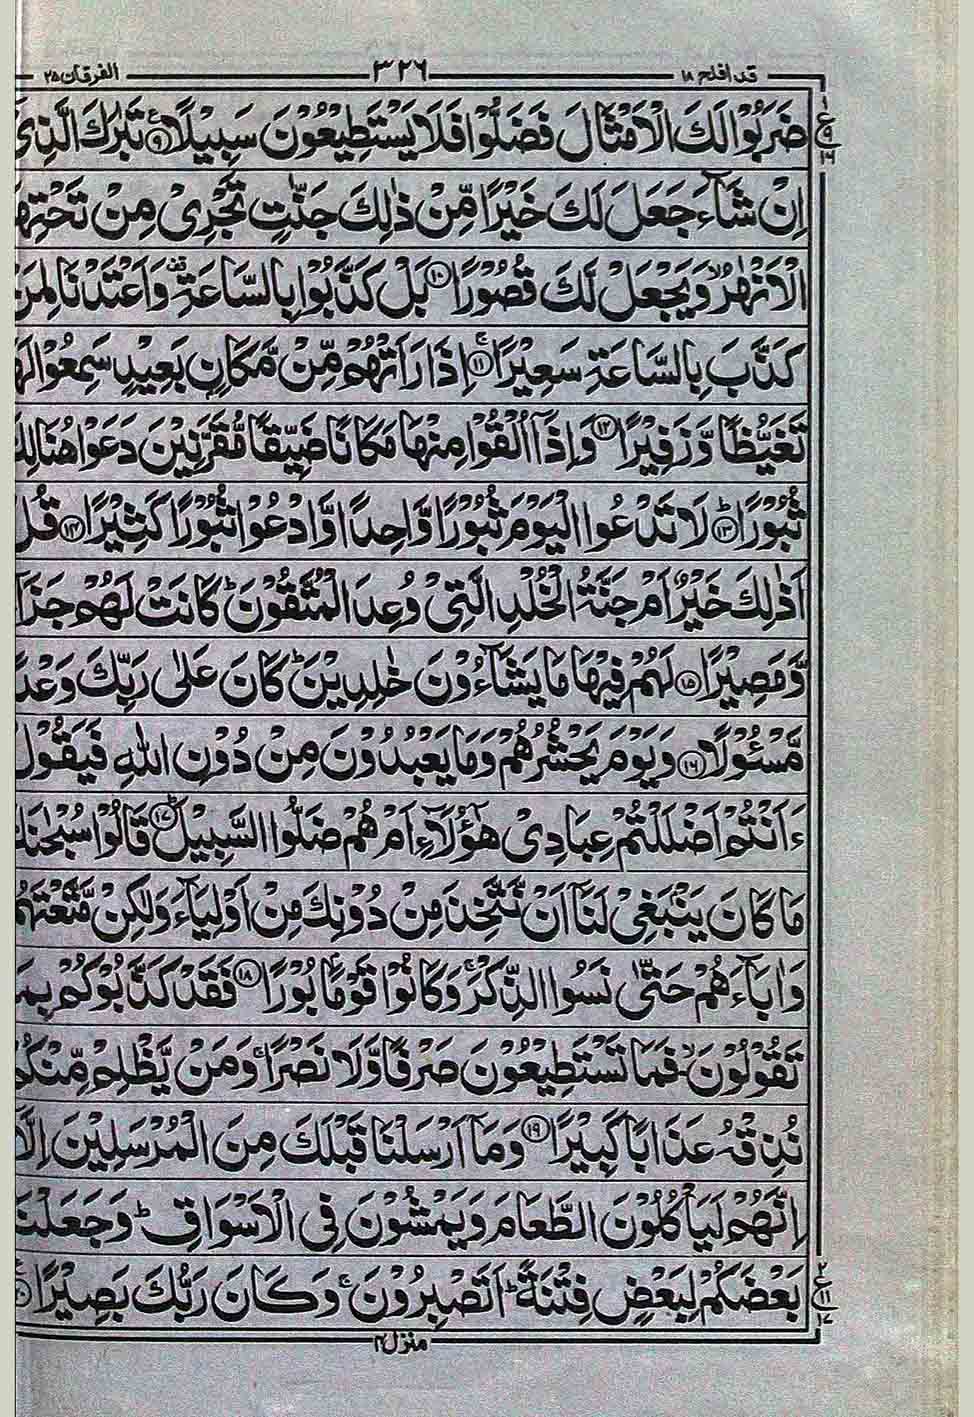 قد افلح ۱۸ ۳۲۶ الفرقان ۲۵
ضَرَبُوْا لَكَ الْاَمْثَالَ فَضَلُّوْا فَلَا يَسْتَطِيْعُوْنَ سَبِيْلًا ۹ تَبٰرَكَ الَّذِيْ
اِنْ شَآءَ جَعَلَ لَكَ خَيْرًا مِّنْ ذٰلِكَ جَنّٰتٍ تَجْرِيْ مِنْ تَحْتِهَا
الْاَنْهٰرُ وَيَجْعَلْ لَّكَ قُصُوْرًا ۱۰ بَلْ كَذَّبُوْا بِالسَّاعَةِ وَاَعْتَدْنَا لِمَنْ
كَذَّبَ بِالسَّاعَةِ سَعِيْرًا ۱۱ اِذَا رَاَتْهُمْ مِّنْ مَّكَانٍ بَعِيْدٍ سَمِعُوْا لَهَا
تَغَيُّظًا وَّزَفِيْرًا ۱۲ وَاِذَآ اُلْقُوْا مِنْهَا مَكَانًا ضَيِّقًا مُّقَرَّنِيْنَ دَعَوْا هُنَالِكَ
ثُبُوْرًا ۱۳ لَا تَدْعُوا الْيَوْمَ ثُبُوْرًا وَّاحِدًا وَّادْعُوْا ثُبُوْرًا كَثِيْرًا ۱۴ قُلْ
اَذٰلِكَ خَيْرٌ اَمْ جَنَّةُ الْخُلْدِ الَّتِيْ وُعِدَ الْمُتَّقُوْنَ ؕ كَانَتْ لَهُمْ جَزَآءً
وَّمَصِيْرًا ۱۵ لَهُمْ فِيْهَا مَا يَشَآءُوْنَ خٰلِدِيْنَ ؕ كَانَ عَلٰى رَبِّكَ وَعْدًا
مَّسْئُوْلًا ۱۶ وَيَوْمَ يَحْشُرُهُمْ وَمَا يَعْبُدُوْنَ مِنْ دُوْنِ اللّٰهِ فَيَقُوْلُ
ءَاَنْتُمْ اَضْلَلْتُمْ عِبَادِيْ هٰٓؤُلَآءِ اَمْ هُمْ ضَلُّوا السَّبِيْلَ ۱۷ قَالُوْا سُبْحٰنَكَ
مَا كَانَ يَنْبَغِيْ لَنَآ اَنْ نَّتَّخِذَ مِنْ دُوْنِكَ مِنْ اَوْلِيَآءَ وَلٰكِنْ مَّتَّعْتَهُمْ
وَاٰبَآءَهُمْ حَتّٰى نَسُوا الذِّكْرَ ۚ وَكَانُوْا قَوْمًۢا بُوْرًا ۱۸ فَقَدْ كَذَّبُوْكُمْ بِمَا
تَقُوْلُوْنَ ۙ فَمَا تَسْتَطِيْعُوْنَ صَرْفًا وَّلَا نَصْرًا ۚ وَمَنْ يَّظْلِمْ مِّنْكُمْ
نُذِقْهُ عَذَابًا كَبِيْرًا ۱۹ وَمَآ اَرْسَلْنَا قَبْلَكَ مِنَ الْمُرْسَلِيْنَ اِلَّآ
اِنَّهُمْ لَيَاْكُلُوْنَ الطَّعَامَ وَيَمْشُوْنَ فِي الْاَسْوَاقِ ؕ وَجَعَلْنَا
بَعْضَكُمْ لِبَعْضٍ فِتْنَةً ؕ اَتَصْبِرُوْنَ ۚ وَكَانَ رَبُّكَ بَصِيْرًا ۲۰
منزل ۴